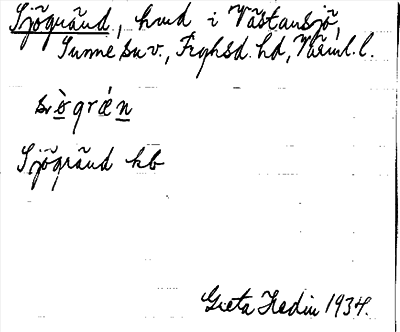 Sjögränd, hmd i Västansjö,
Sunne sn v., Frykhsd. hd, Värml. l.
sɩ̀ògrǽn
Sjögränd kb
Greta Hedin 1934.